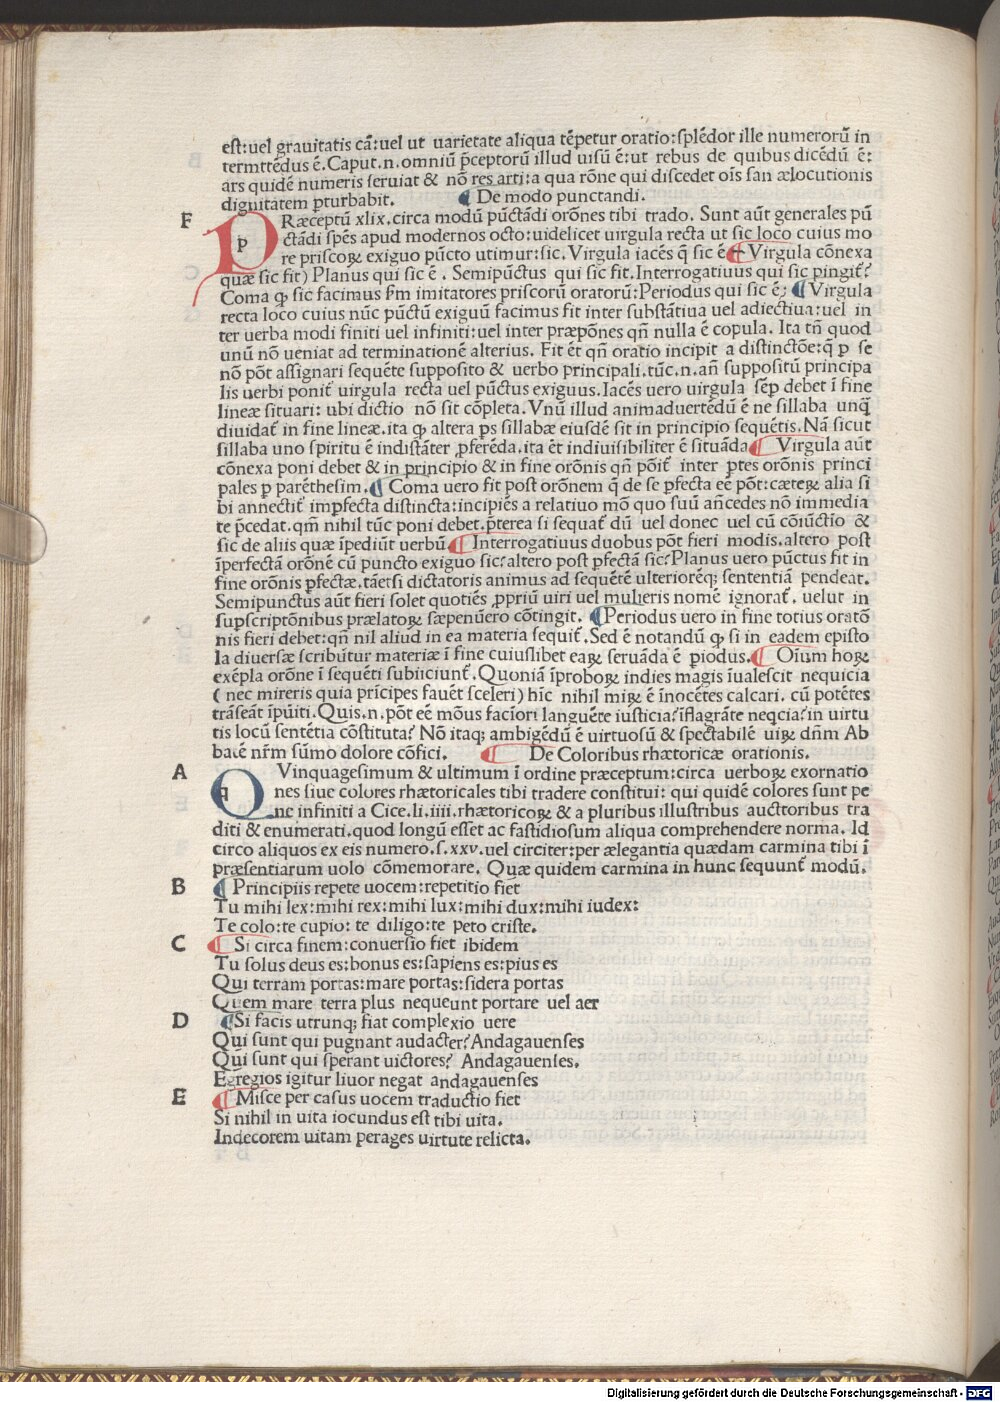 est:uel grauitatis cā:uel ut uarietate aliqua tēpetur oratio:splēdor ille numerorū in
termttēdus ē.Caput.n.omniū p̄ceptorū illud uisū ē:ut rebus de quibus dicēdū ē:
ars quidē numeris seruiat & nō res arti:a qua rōne qui discedet oīs san ælocutionis
dignitatem pturbabit. ¶ De modo punctandi.
F PRæceptū xlix.circa modū pūctādi orōnes tibi trado. Sunt aūt generales pū
ctādi spēs apud modernos octo:uidelicet uirgula recta ut sic loco cuius mo
re priscoꝝ exiguo pūcto utimur:sic. Virgula iacēs q̄ sic ē ¶ Virgula cōnexa
quæ sic fit) Planus qui sic ē . Semipūctus qui sic fit.Interrogatiuus qui sic pingit̄?
Coma ꝙ sic facimus ſm imitatores priscorū oratorū:Periodus qui sic ē; ¶ Virgula
recta loco cuius nūc pūctū exiguū facimus fit inter substātiua uel adiectiua:uel in
ter uerba modi finiti uel infiniti:uel inter præpōnes qn̄ nulla ē copula. Ita tn̄ quod
unū nō ueniat ad terminationē alterius. Fit ēt qn̄ oratio incipit a distinctōe:q̄ p se
nō pōt assignari sequēte supposito & uerbo principali.tūc.n.an̄ suppositū principa
lis uerbi ponit̄ uirgula recta uel pūctus exiguus.Iacēs uero uirgula sēp debet ī fine
lineæ situari: ubi dictio nō sit cōpleta.Vnū illud animaduertēdū ē ne sillaba unq̄
diuidat̄ in fine lineæ.ita ꝙ altera ps sillabæ eiusdē sit in principio sequētis.Nā sicut
sillaba uno spiritu ē indistāter ꝓferēda.ita ēt indiuisibiliter ē situāda ¶ Virgula aūt
cōnexa poni debet & in principio & in fine orōnis qn̄ pōit̄ inter ptes orōnis princi
pales p parēthesim. ¶ Coma uero fit post orōnem q̄ de se pfecta eē pōt:cæteꝝ alia si
bi annectit̄ impfecta distincta:incipiēs a relatiuo mō quo suū an̄cedes nō immedia
te p̄cedat.qm̄ nihil tūc poni debet.p̄terea si sequat̄ dū uel donec uel cū cōiūctio &
sic de aliis quæ īpediūt uerbū. ¶ Interrogatiuus duobus pōt fieri modis.altero post
īperfectā orōnē cū puncto exiguo sic?altero post pfectā sic?Planus uero pūctus fit in
fine orōnis pfectæ.tāetsi dictatoris animus ad sequētē ulteriorēqꝫ sententiā pendeat.
Semipunctus aūt fieri solet quotiēs ꝓpriū uiri uel mulieris nomē ignorat̄. uelut in
supscriptōnibus prælatoꝝ sæpenūero cōtingit. ¶ Periodus uero in fine totius oratō
nis fieri debet:qn̄ nil aliud in ea materia sequit̄.Sed ē notandū ꝙ si in eadem episto
la diuersæ scribūtur materiæ ī fine cuiuslibet eaꝝ seruāda ē piodus. ¶ Oīum hoꝝ
exēpla orōne ī sequēti subiiciunt̄.Quoniā īproboꝝ indies magis īualescit nequicia
( nec mireris quia prīcipes fauēt sceleri) hīc nihil miꝝ ē īnocētes calcari. cū potētes
trāseāt īpūiti.Quis.n.pōt eē mōus facīori languēte iusticia?īflagrāte neqcia?in uirtu
tis locū sentētia cōstituta? Nō itaqꝫ ambigēdū ē uirtuosū & spectabilē uiꝝ dn̄m Ab
batē nr̄m sūmo dolore cōfici. ¶ De Coloribus rhætoricæ orationis.
A QVinquagesimum & ultimum ī ordine præceptum:circa uerboꝝ exornatio
nes siue colores rhætoricales tibi tradere constitui: qui quidē colores sunt pe
ne infiniti a Cice.li.iiii.rhætoricoꝝ & a pluribus illustribus auctoribus tra
diti & enumerati.quod longū esset ac fastidiosum aliqua comprehendere norma. Id
circo aliquos ex eis numero.s.xxv.uel circiter:per ælegantia quædam carmina tibi ī
præsentiarum uolo cōmemorare. Quæ quidem carmina in hunc sequunt̄ modū.
B ¶ Principiis repete uocem:repetitio fiet
Tu mihi lex:mihi rex:mihi lux:mihi dux:mihi iudex:
Te colo:te cupio: te diligo:te peto criste.
C ¶ Si circa finem:conuersio fiet ibidem
Tu solus deus es:bonus es:sapiens es:pius es
Qui terram portas:mare portas:sidera portas
Quem mare terra plus nequeunt portare uel aer
D ¶ Si facis utrunqꝫ fiat complexio uere
Qui sunt qui pugnant audacter?Andagauenses
Qui sunt qui sperant uictores? Andagauenses.
Egregios igitur liuor negat andagauenses
E ¶ Misce per casus uocem traductio fiet
Si nihil in uita iocundus est tibi uita.
Indecorem uitam perages uirtute relicta.
Digitalisierung gefördert durch die Deutsche Forschungsgemeinschaft - DFG